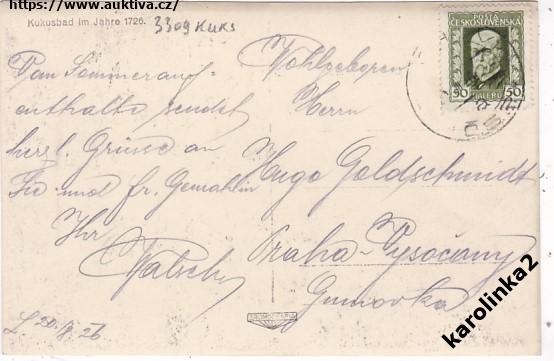 https://www.auktiva.cz/
Kukusbad im Jahre 1726.
3309 KUKS
POŠTA
ČESKOSLOVENSKÁ
50 HALERU 50
Vom Sommerauf-
enthalte sendet
herzl. Grüsse an
Sie und fr. Gemahlin
Ihr
Wohlgeboren
Herrn
Hugo Goldschmidt
Praha-Vysočany
Gumovka
karolinka2